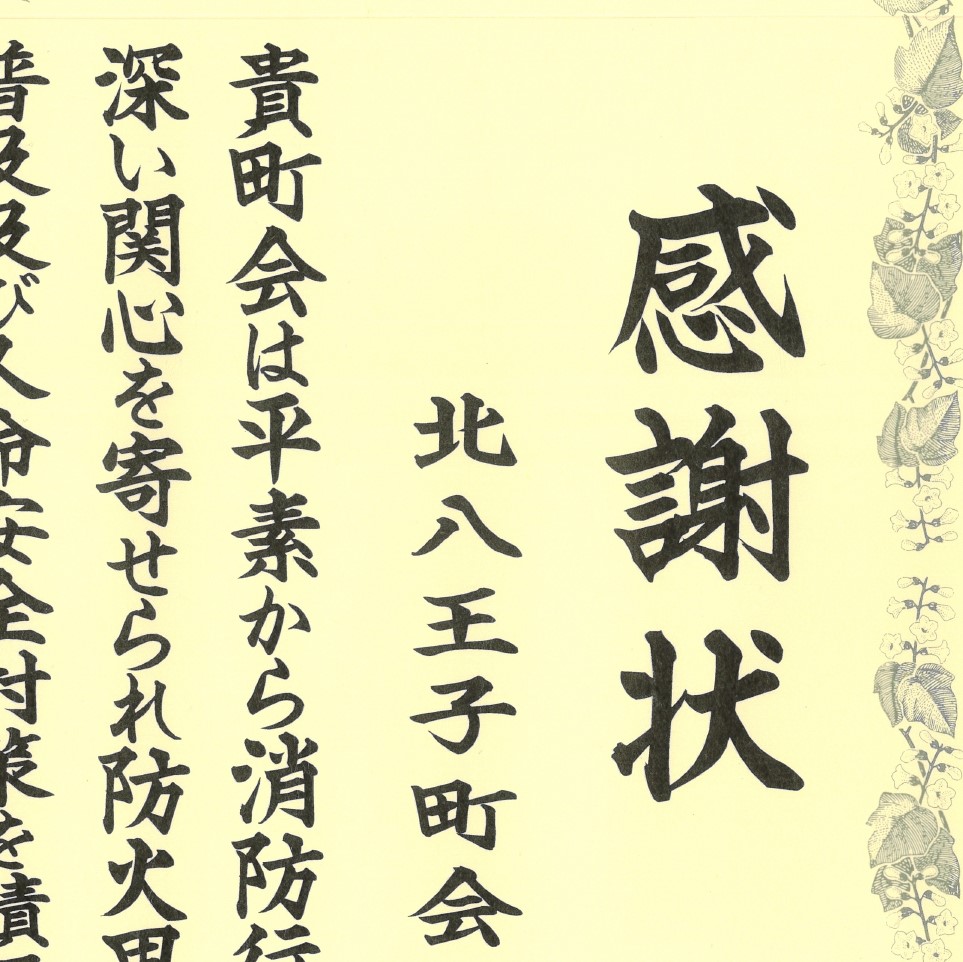 感謝状
北八王子町会
貴町会は平素から消防行
深い関心を寄せられ防火思
普及及び人命安全対策を積